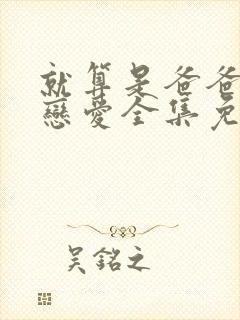 就算是爸爸
戀愛全集免
吳銘之